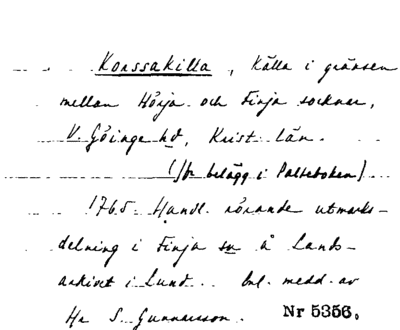 Korssakilla, Källa i gränsen
mellan Hörja och Finja socknar,
V. Göinge hd, Krist. län.
(Jfr belägg i Palteboken)
1765. Handl. rörande utmarks-
delning i Finja sn å Lands-
arkivet i Lund. Enl. medd. av
Hr S. Gunnarsson. Nr 5356.